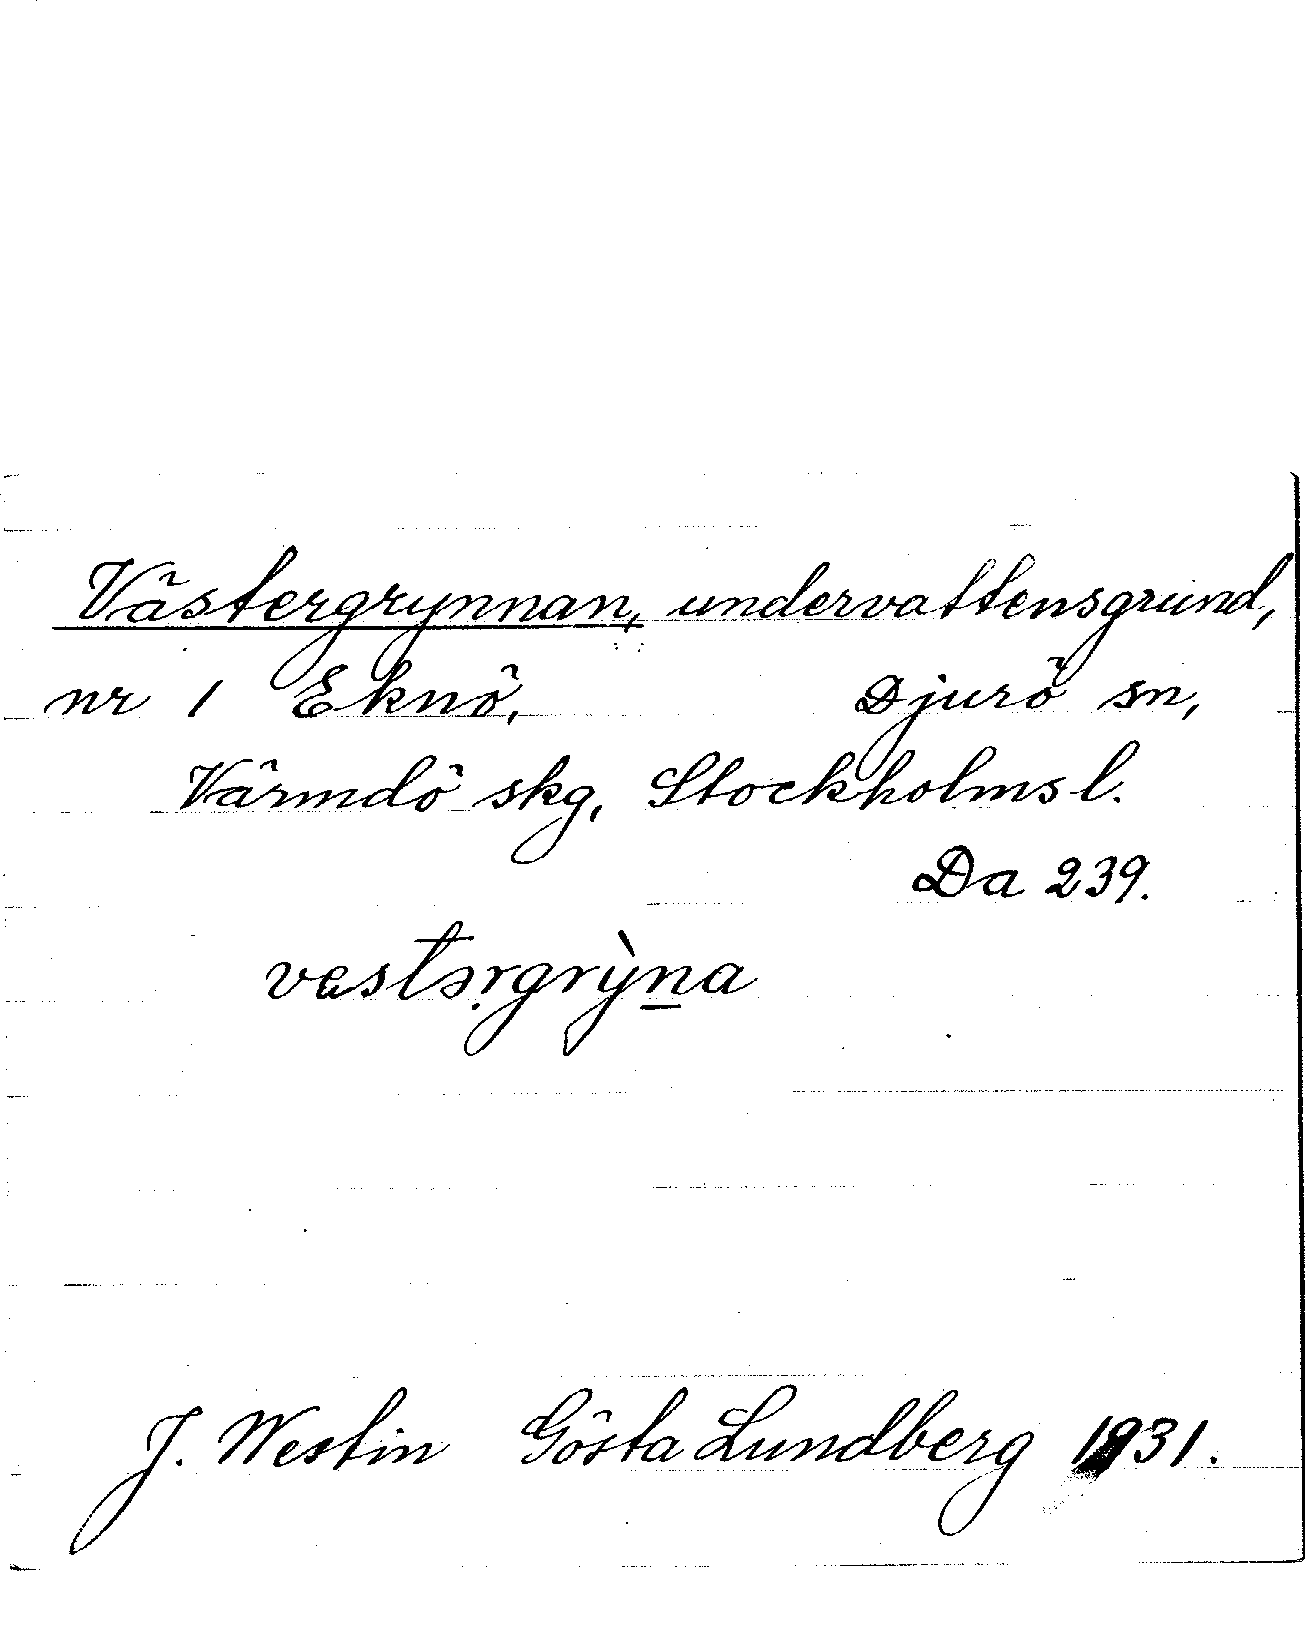 Västergrynnan, undervattensgrund,
nr 1 Eknö, Djurö sn,
Värmdö skg, Stockholms l.
Da 239.
vestərgrỳna
J. Westin Gösta Lundberg 1931.